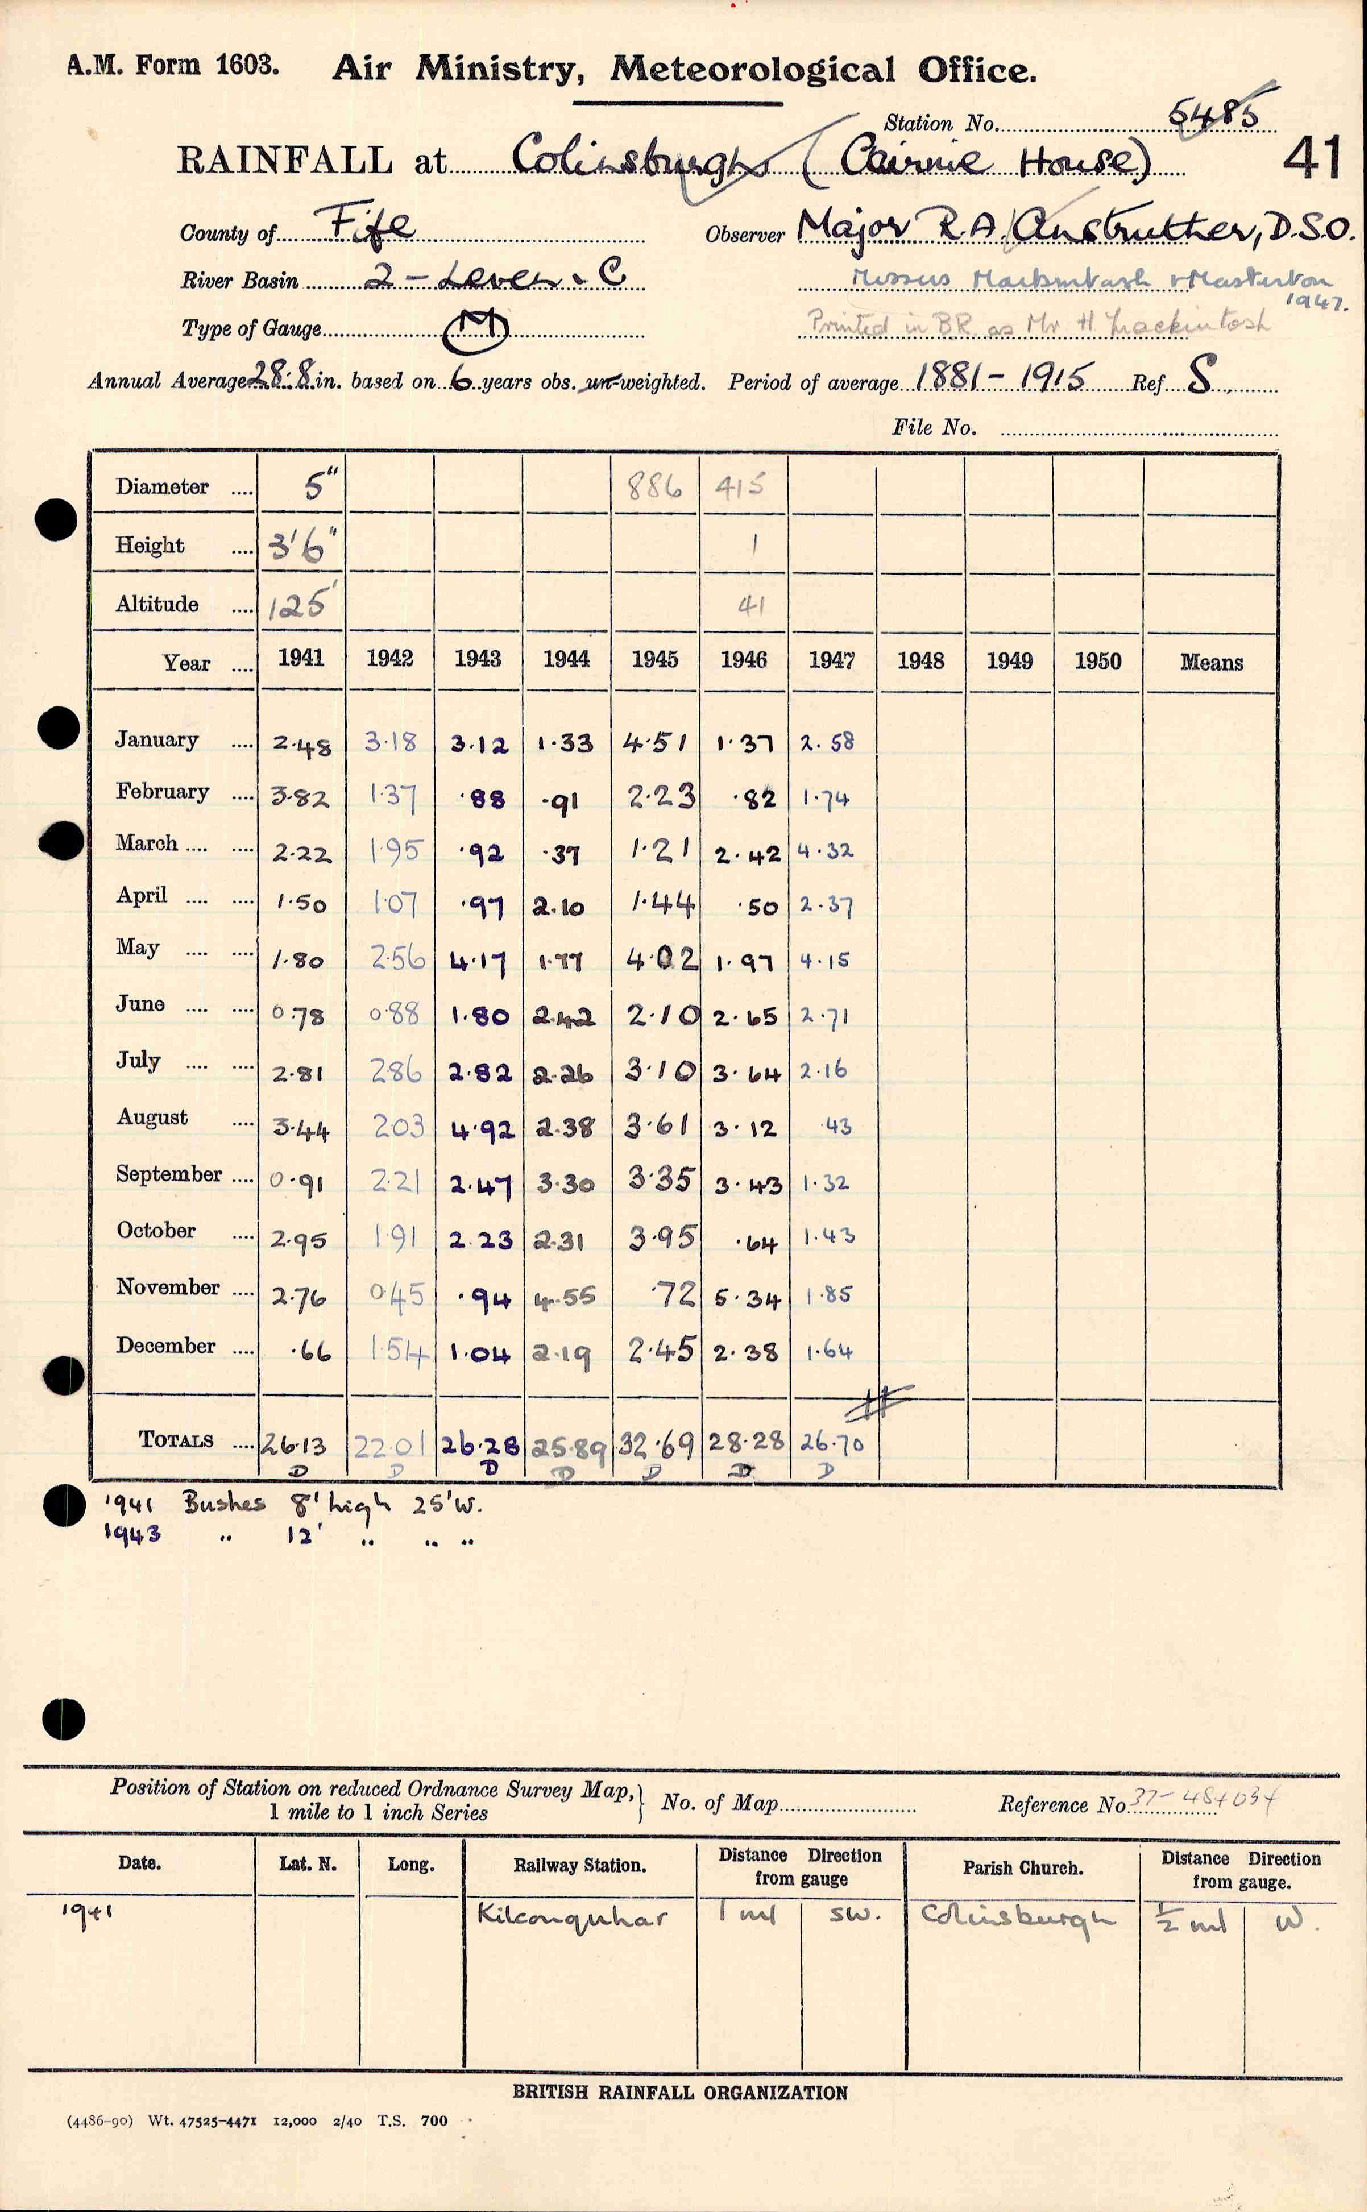 A.M. Form 1603. Air Ministry, Meteorological Office.
Station No. 5485
RAINFALL at Colinsburgh (Cairnie House) 41
County of Fife Observer Major R.A. Anstruther, D.S.O.
River Basin 2 - Leven - C Messrs Mackintosh & Masterton
1947.
Type of Gauge M Printed in BR as Mr H. Mackintosh
Annual Average 28.8 in. based on 6 years obs. un-weighted. Period of average 1881-1915 Ref S
File No.
Diameter .... 5" 886 415
Height .... 3'6" 1
Altitude .... 125' 41
Year .... 1941 1942 1943 1944 1945 1946 1947 1948 1949 1950 Means
January .... 2.48 3.18 3.12 1.33 4.51 1.37 2.58
February .... 3.82 1.37 .88 .91 2.23 .82 1.74
March .... .... 2.22 1.95 .92 .37 1.21 2.42 4.32
April .... .... 1.50 1.07 .97 2.10 1.44 .50 2.37
May .... .... 1.80 2.56 4.17 1.77 4.02 1.97 4.15
June .... .... 0.78 0.88 1.80 2.42 2.10 2.65 2.71
July .... .... 2.81 2.86 2.82 2.26 3.10 3.64 2.16
August .... 3.44 2.03 4.92 2.38 3.61 3.12 .43
September .... 0.91 2.21 2.47 3.30 3.35 3.43 1.32
October .... 2.95 1.91 2.23 2.31 3.95 .64 1.43
November .... 2.76 0.45 .94 4.55 .72 5.34 1.85
December .... .66 1.54 1.04 2.19 2.45 2.38 1.64
TOTALS .... 26.13 22.01 26.28 25.89 32.69 28.28 26.70
D D D D D D D
1941 Bushes 8' high 25' W.
1943 " 12' " " "
Position of Station on reduced Ordnance Survey Map,
1 mile to 1 inch Series } No. of Map Reference No 37-484034
Date. Lat. N. Long. Railway Station. Distance Direction from gauge Parish Church. Distance Direction from gauge.
1941 Kilconquhar 1 ml SW. Colinsburgh ½ ml W.
BRITISH RAINFALL ORGANIZATION
(4486-90) Wt. 47525-4471 12,000 2/40 T.S. 700